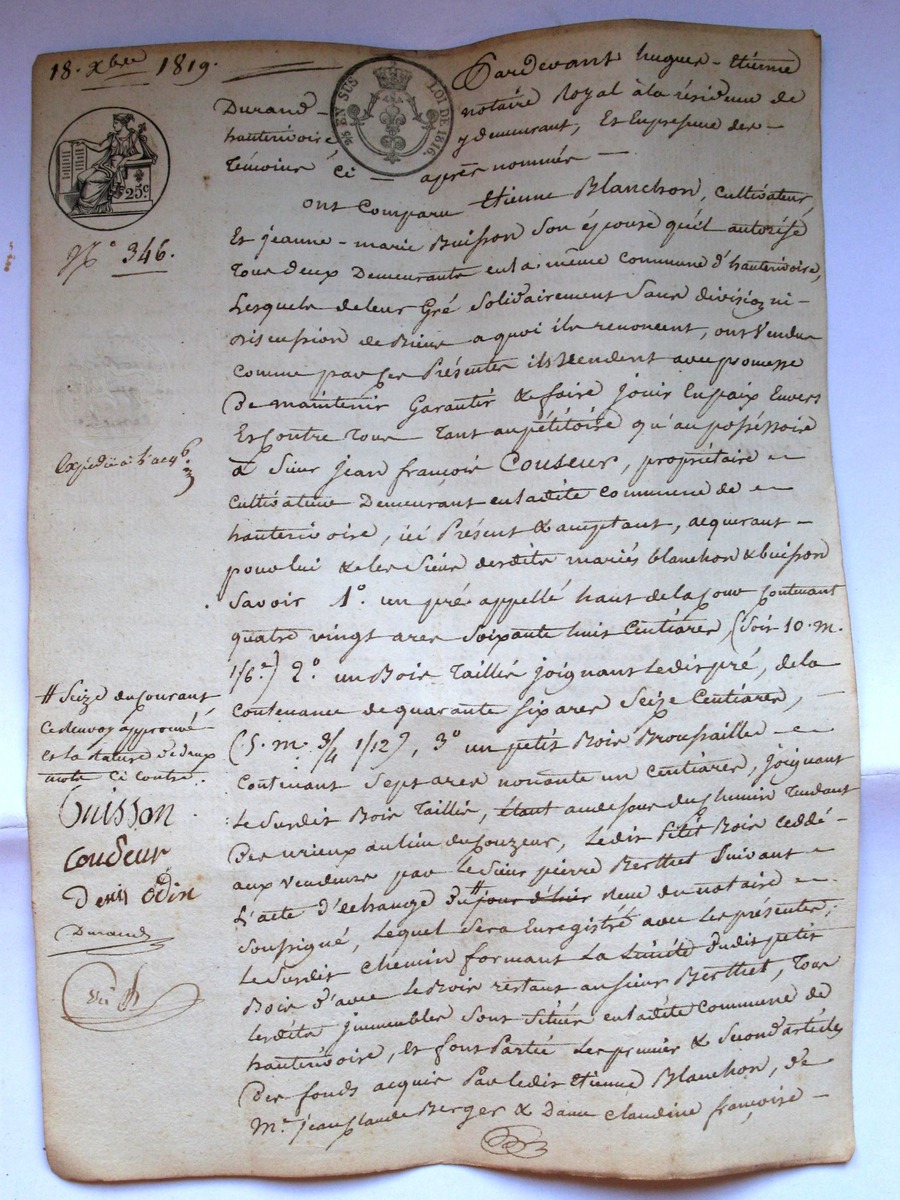 18. Xbre 1819.
Pardevant hugues-Etienne
Durand notaire Royal à la résidence de
hauterivoire y demeurant, Et En presence des
Temoins Ci-après nommés
¼ EN SUS LOI DE 1816.
25c
ont Comparu Etienne Blanchon, Cultivateur,
Et jeanne-marie Buisson Son épouse qu'il autorise
Tous deux Demeurants en la même Commune d'hauterivoire,
N° 346.
Lesquels de leur Gré Solidairement Sans division ni
discussion de Biens a quoi ils renoncent, ont Vendu
Comme par Ces Présentes ils Vendent avec promesse
De maintenir Garantir & faire jouir En paix Envers
Et Contre Tous Tant au pétitoire qu'au posséssoire
à Sieur jean françois COUDEUR, propriétaire
Cultivateur Demeurant en ladite Commune de
hauterivoire, ici Présent & acceptant, acquerant
pour lui & les Siens desdits mariés blanchon & buisson
Savoir 1° un pré appellé haut de la Contenant
quatre vingt ares Soixante huit Centiares, (Soit 10. m.
1/6e) 2° un Bois Taillis joignant Ledit pré, de la
Contenance de quarante Six ares Seize Centiares,
(5. m. 3/4 1/12), 3° un petit Bois Broussailles
Contenant Sept ares nonante un Centiares, joignant
Le Susdit Bois Taillis, étant au dessous du Chemin Tendant
Des urieux au lieu du Couzeur, Ledit Petit Bois Ceddé
aux Vendeurs par Le Sieur pierre Berthet Suivant
L'acte d'échange du # jour d'hier Reçu du notaire
Soussigné, Lequel Sera Enregistré avec Les présentes;
Le Susdit Chemin formant La Limite dudit petit
Bois d'avec Le Bois restant au Sieur Berthet, Tous
Lesdits jmmeubles Sont Situés en ladite Commune de
hauterivoire, et font Partie Les premier & Second articles
Des fonds acquis Par ledit Etienne Blanchon, de
Mr. jean Claude Berger & Dame Claudine françoise
# Seize du Courant
Ce renvoy approuvé
et la rature de deux
mots Ci Contre.
Buisson
Coudeur
Denis Odin
Durand